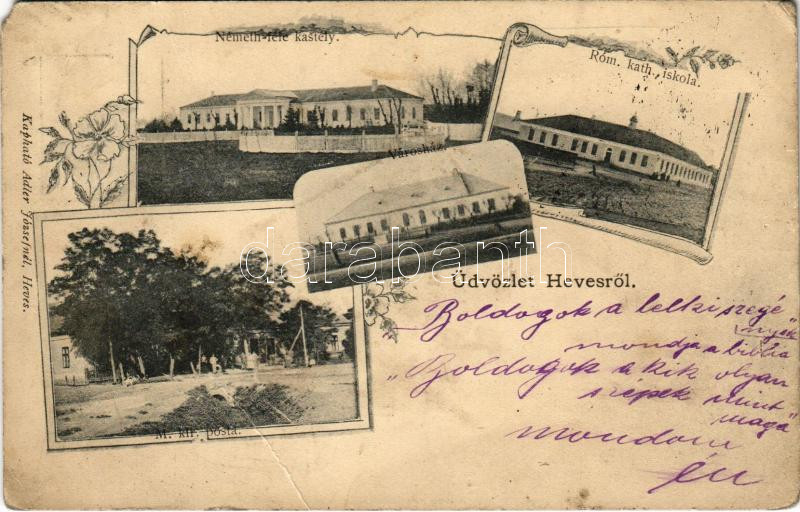 Németh-féle kastély.
Róm. kath. iskola.
Városháza
M. kir. posta.
Kapható Adler Józsefnél, Heves.
darabanth
Üdvözlet Hevesről.
Boldogok a lelki szegé
nyek"
mondja a biblia
"Boldogok a kik olyan
szépek mint
maga"
mondom
én